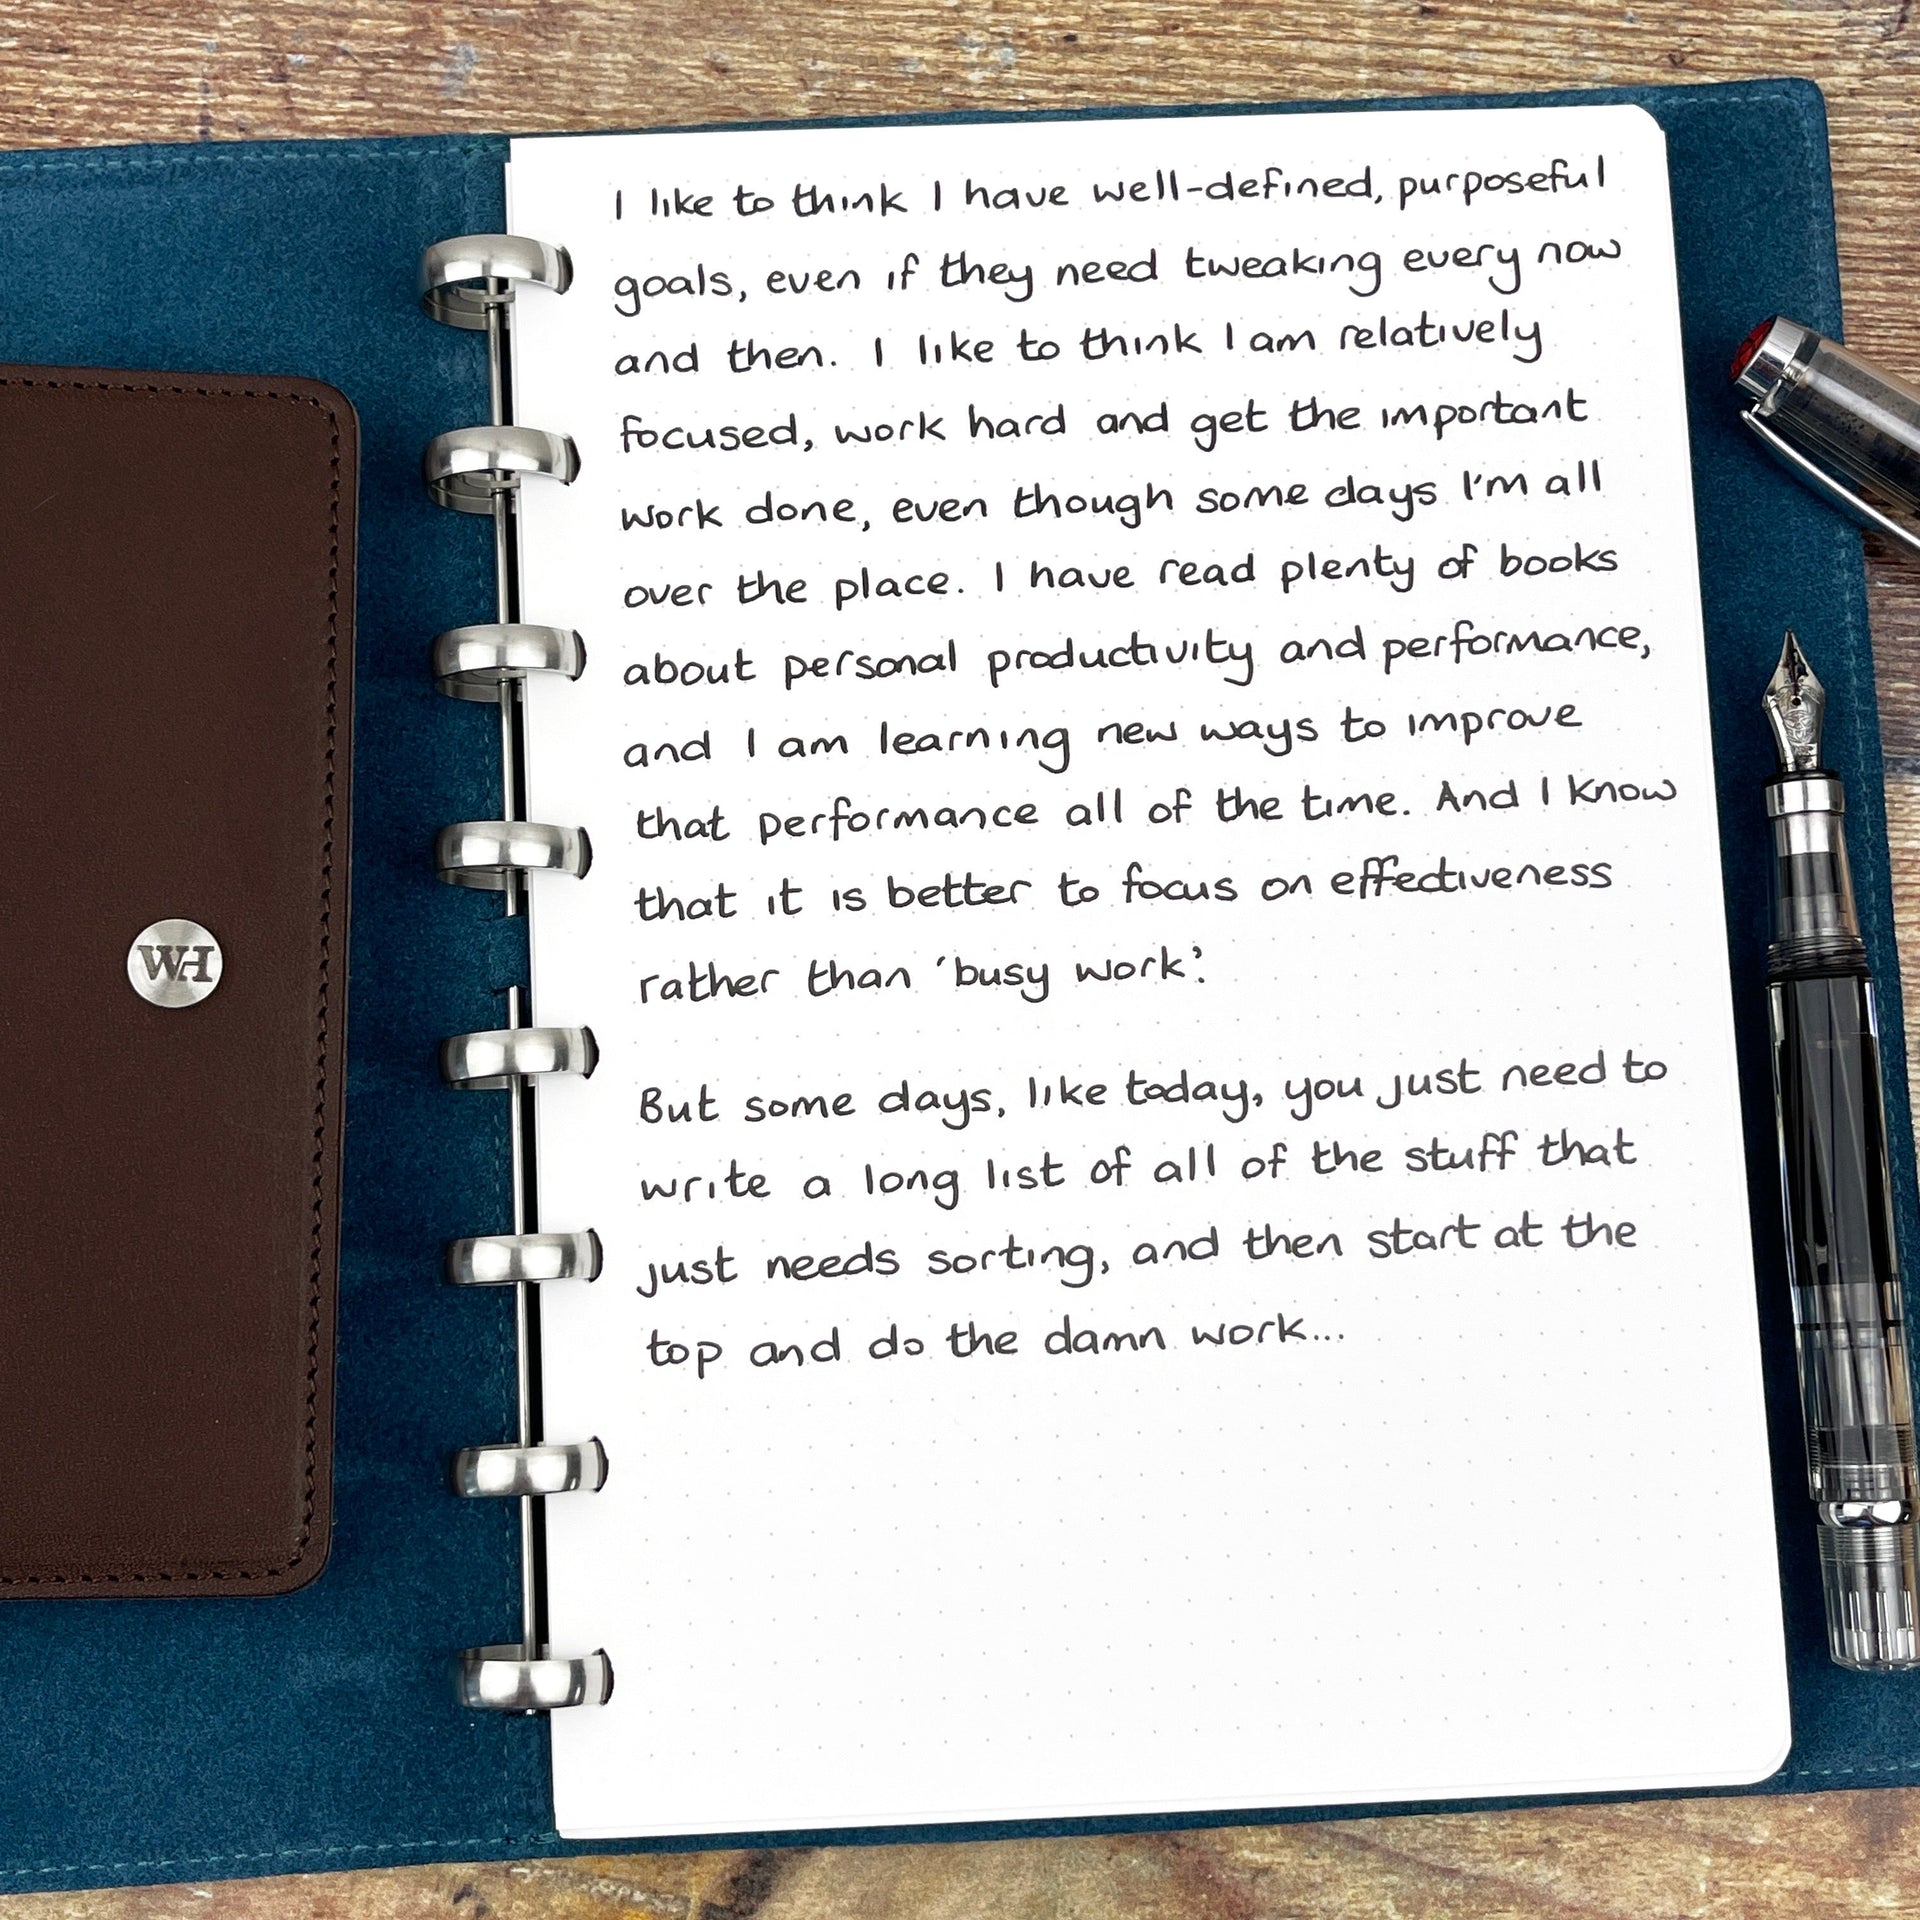 I like to think I have well-defined, purposeful
goals, even if they need tweaking every now
and then. I like to think I am relatively
focused, work hard and get the important
work done, even though some days I'm all
over the place. I have read plenty of books
about personal productivity and performance,
and I am learning new ways to improve
that performance all of the time. And I know
that it is better to focus on effectiveness
rather than 'busy work'.
But some days, like today, you just need to
write a long list of all of the stuff that
just needs sorting, and then start at the
top and do the damn work...
WH